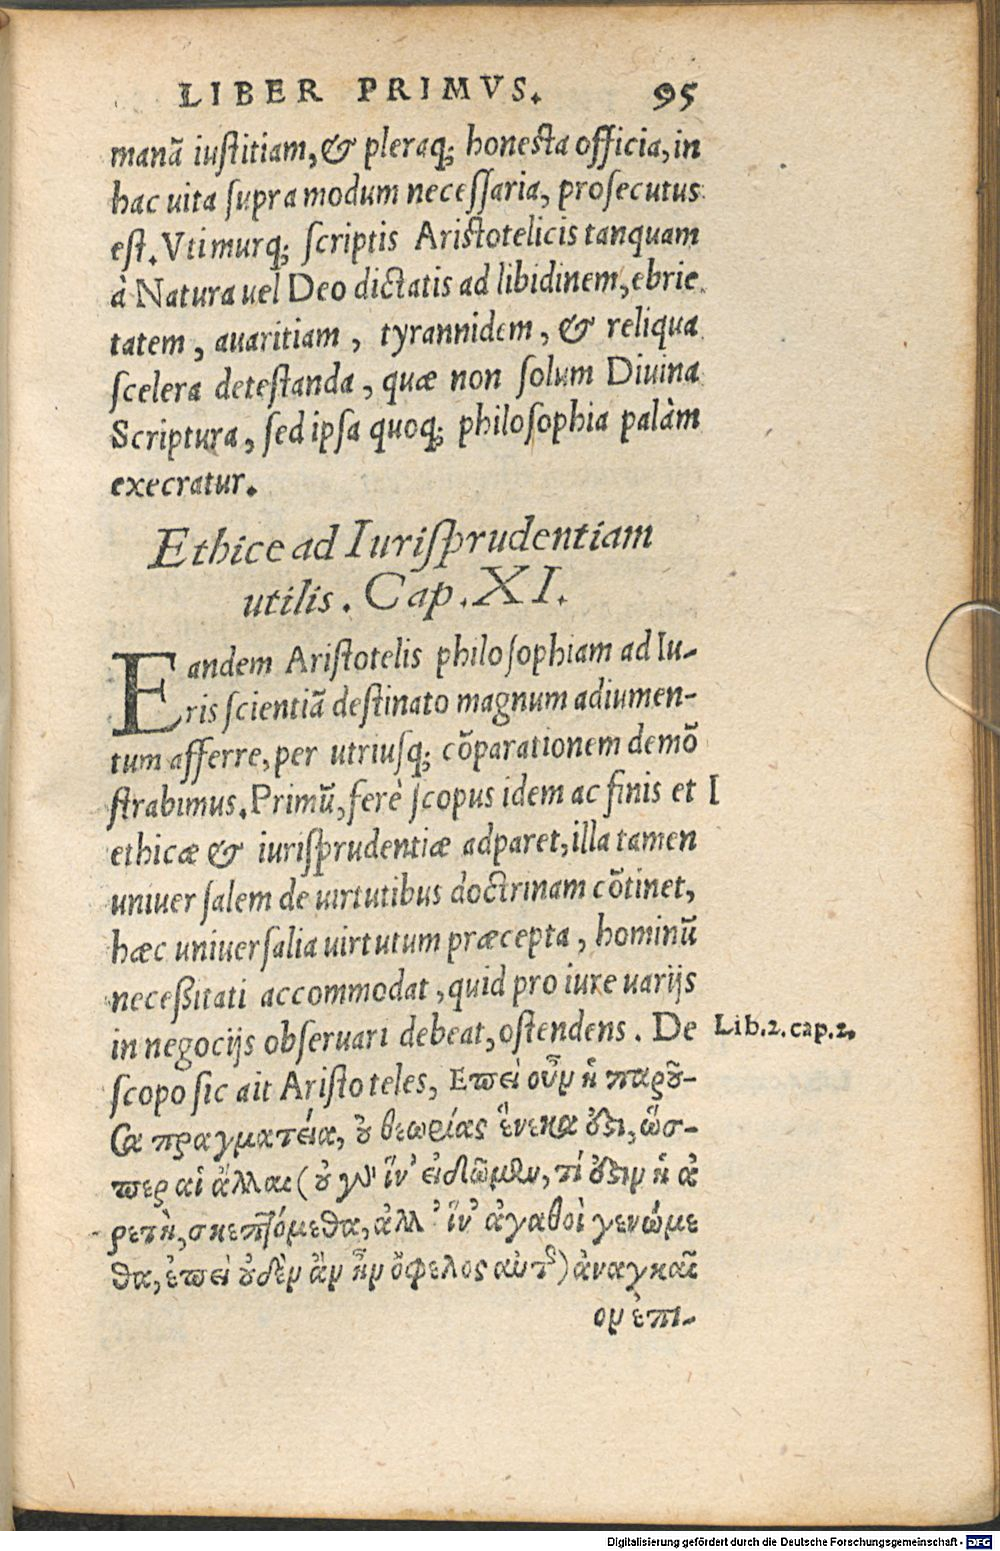 LIBER PRIMVS. 95
manã iustitiam, & pleraq; honesta officia, in
hac uita supra modum necessaria, prosecutus
est. Vtimurq; scriptis Aristotelicis tanquam
à Natura uel Deo dictatis ad libidinem, ebrie
tatem, auaritiam, tyrannidem, & reliqua
scelera detestanda, quæ non solum Diuina
Scriptura, sed ipsa quoq; philosophia palàm
execratur.
Ethice ad Iurisprudentiam
utilis. Cap. XI.
Eandem Aristotelis philosophiam ad Iu-
ris scientiã destinato magnum adiumen-
tum afferre, per utriusq; cõparationem demõ
strabimus. Primũ, ferè scopus idem ac finis et I
ethicæ & iurisprudentiæ adparet, illa tamen
uniuersalem de uirtutibus doctrinam cõtinet,
hæc uniuersalia uirtutum præcepta, hominũ
necessitati accommodat, quid pro iure uarijs
in negocijs obseruari debeat, ostendens. De Lib.2.cap.2.
scopo sic ait Aristoteles, Επεὶ οὖν ἡ παροῦ-
σα πραγματεία, οὐ θεωρίας ἕνεκα ὅστι, ὥσ-
περ αἱ ἄλλαι (οὐ γὰρ ἵν' εἰδῶμεν, τί ὅστιν ἡ ἀ
ρετὴ, σκεπτόμεθα, ἀλλ' ἵν' ἀγαθοὶ γενώμε
θα, ἐπεὶ οὐδὲν ἂν ἦν ὄφελος αὐτῆς) ἀναγκαῖ
ον ἐπι-
Digitalisierung gefördert durch die Deutsche Forschungsgemeinschaft - DFG